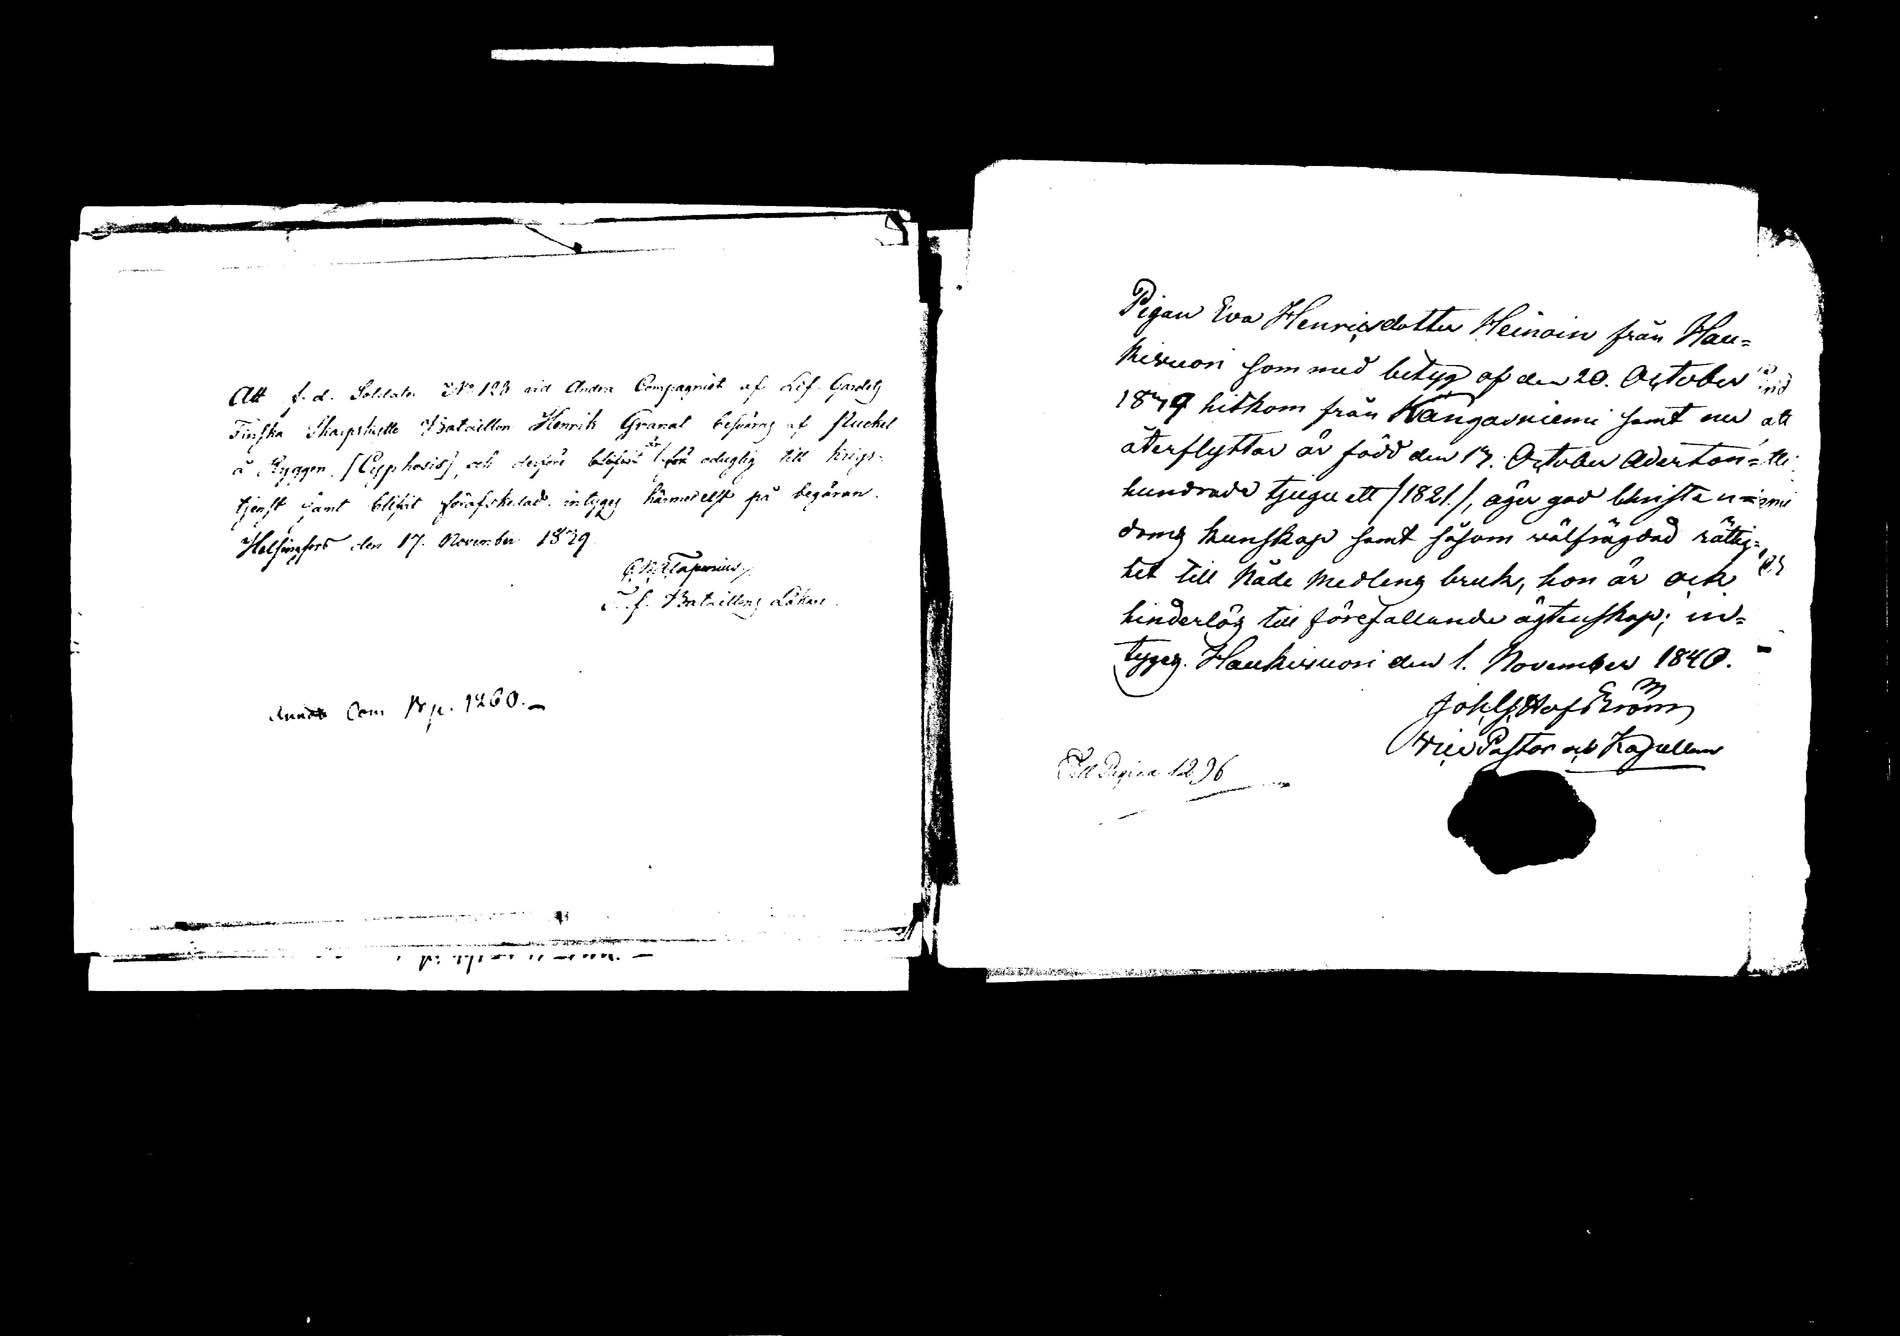 Att f.d. Soldaten No 123 vid Andra Compagniet af Lif-Gardets
Finska Skarpskytte Bataillon Henrik Granat besväras af Puckel
å Ryggen [Cyphosis] och derföre är oduglig till krigs-
tjenst samt blifvit förafskedad intygas härmedelst på begäran.
Helsingfors den 17. November 1839
T.f. Bataillons Läkare.
Com Bp. 1260.
Pigan Eva Henricsdotter Heinoin från Hau=
kivuori som med betyg af den 20. October
1839 hitkom från Kangasniemi samt nu
återflyttar är född den 17. October Aderton=
hundrade tjugu ett /1821./, äger god Christen=
doms kunskap samt såsom välfrägdad rättig=
het till Nåde medlens bruk, hon är ock
hinderlös till förefallande ägtenskap; in=
tygas. Haukivuori den 1. November 1840.
Joh. G. Hofström
Vice Pastor och Kapellan
Till Pagina 1296